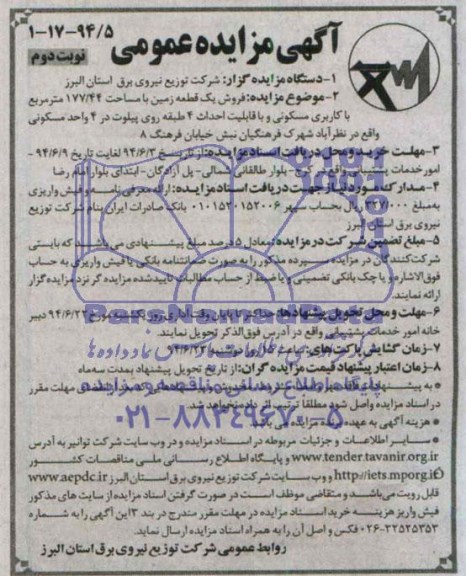 ۹۴/۵-۱۷-۱
آگهی مزایده عمومی
نوبت دوم
۱-دستگاه مزایده گزار: شرکت توزیع نیروی برق استان البرز
۲-موضوع مزایده: فروش یک قطعه زمین با مساحت ۱۷۷/۴۴ مترمربع
با کاربری مسکونی و با قابلیت احداث ۴ طبقه روی پیلوت در ۴ واحد مسکونی
واقع در نظرآباد شهرک فرهنگیان نبش خیابان فرهنگ ۸
۳-مهلت خرید و محل دریافت اسناد مزایده: از تاریخ ۹۴/۶/۳ لغایت تاریخ ۹۴/۶/۹ -
امور خدمات پشتیبانی واقع در کرج- بلوار طالقانی شمالی- پل آزادگان- ابتدای بلوار امام رضا
۴-مدارک مورد نیاز جهت دریافت اسناد مزایده: ارائه معرفی نامه و فیش واریزی
به مبلغ ۳۲۷/۰۰۰ ریال بحساب سپهر ۰۱۰۱۵۲۰۱۵۲۰۰۶ بانک صادرات ایران بنام شرکت توزیع
نیروی برق استان البرز
۵-مبلغ تضمین شرکت در مزایده: معادل ۵ درصد مبلغ پیشنهادی می باشد که بایستی
شرکت کنندگان در مزایده سپرده مذکور را به صورت ضمانتنامه بانکی یا فیش واریزی به حساب
فوق الاشاره و یا چک بانکی تضمینی و یا ضبط از حساب مطالبات تایید شده مزایده گر نزد مزایده گزار
ارائه نمایند.
۶-مهلت و محل تحویل پیشنهادها: حداکثر تا پایان وقت اداری روز یکشنبه مورخ ۹۴/۶/۲۲ دبیر
خانه امور خدمات پشتیبانی واقع در آدرس فوق الذکر تحویل نمایند.
۷-زمان گشایش پاکت های: ساعت دوشنبه ۹۴/۶/۲۳
۸-زمان اعتبار پیشنهاد قیمت مزایده گران: از تاریخ تحویل پیشنهاد بمدت سه ماه
* به پیشنهادهای فاقد سپرده که بعد از انقضای مهلت مقرر
در اسناد مزایده واصل شود مطلقاً ترتیب اثر داده نخواهد شد.
* هزینه آگهی به عهده برنده مزایده می باشد.
* سایر اطلاعات و جزئیات مربوطه در اسناد مزایده و در وب سایت شرکت توانیر به آدرس
www.tender.tavanir.org.ir و پایگاه اطلاع رسانی ملی مناقصات کشور
http://iets.mporg.ir و وب سایت شرکت توزیع نیروی برق استان البرز www.aepdc.ir
قابل رویت می باشد و متقاضی موظف است در صورت گرفتن اسناد مزایده از سایت های مذکور
فیش واریز هزینه خرید اسناد مزایده در مهلت مقرر مندرج در بند ۳ این آگهی را به شماره
۰۲۶-۳۲۵۲۵۳۵۳ فکس و اصل آن را به همراه اسناد مزایده ارسال نماید.
روابط عمومی شرکت توزیع نیروی برق استان البرز
ParsNamadData
۰۲۱-۸۸۳۴۹۶۷۰-۵